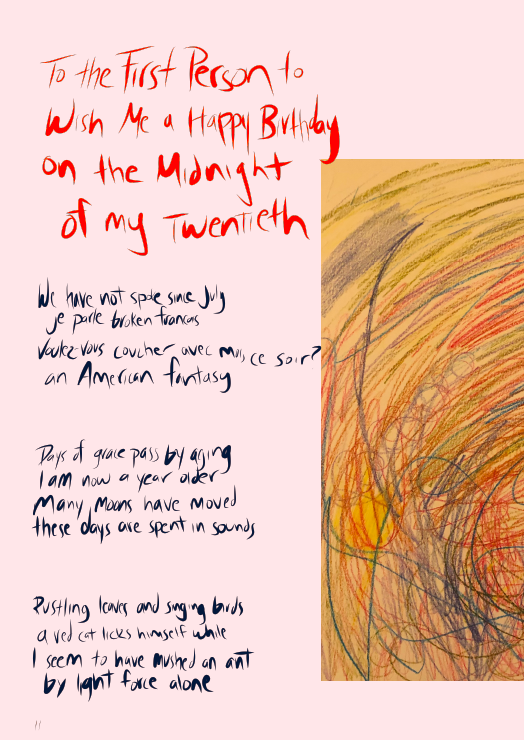 To the First Person to
Wish Me a Happy Birthday
on the Midnight
of my Twentieth
We have not spoke since July
je parle broken francais
Voulez vous coucher avec mois ce soir?
an American fantasy
Days of grace pass by aging
I am now a year older
Many Moons have moved
these days are spent in sounds
Rustling leaves and singing birds
a red cat licks himself while
I seem to have mushed an ant
by light force alone
11